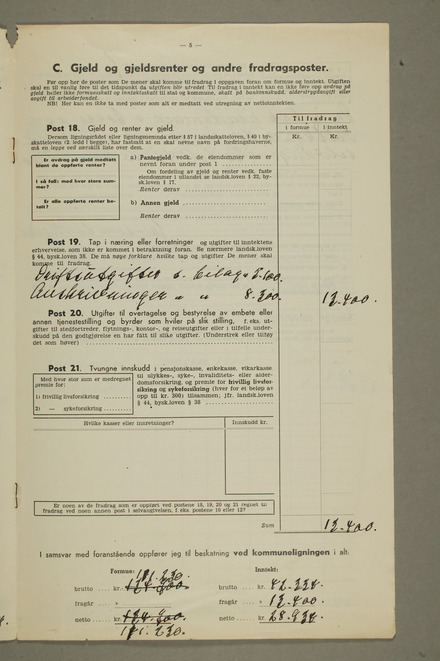 — 5 —
C. Gjeld og gjeldsrenter og andre fradragsposter.
Før opp her de poster som De mener skal komme til fradrag i oppgaven foran om formue og inntekt. Utgiften
NB! Her kan en ikke ta med poster som alt er medtatt ved utregning av nettoinntekten.
Til fradrag
i formue i inntekt
Kr. Kr.
Post 18. Gjeld og renter av gjeld.
Dersom ligningsrådet eller ligningsnemnda etter § 57 i landsskatteloven, § 49 i by-
skatteloven (2. ledd i begge), har fastsatt at en skal nevne navn på fordringshaverne,
må en legge ved særskilt liste over dem.
Er avdrag på gjeld medtatt
blant de oppførte renter?
I så fall: med hvor stor sum-
mer?
Er alle oppførte renter be-
talt?
a) Pantegjeld vedk. de eiendommer som er
nevnt foran under post 1
Om fordeling av gjeld og renter vedk. faste
eiendommer i utlandet se landsk.loven § 22, by-
sk.loven § 17.
Renter derav
b) Annen gjeld
Renter derav
Post 19. Tap i næring eller forretninger og utgifter til inntektens
ervervelse, som ikke er kommet i betraktning foran. Se nærmere landsk.loven
§ 44, bysk.loven § 38. De må nøye forklare hvilke tap og utgifter De mener skal
komme til fradrag.
Driftsutgifter s. bilag
Avskrivninger " "
13.400.
Post 20. Utgifter til overtagelse og bestyrelse av embete eller
annen tjenestestilling og byrder som hviler på slik stilling, f. eks. ut-
gifter til stedfortreder, flytnings-, kontor-, og reiseutgifter eller i tilfelle under-
skudd på den godtgjørelse en har fått til slike utgifter. (Understrek eller tilføy
det som høver)
Post 21. Tvungne innskudd i pensjonskasse, enkekasse, sikarkasse
Med hvor stor sum er medregnet
premie for:
1) frivillig livsforsikring
2) — sykeforsikring
til ulykkes-, syke-, invaliditets- eller al-
derdomsforsikring, og premie for frivillig livsfor-
sikring og sykeforsikring (hver for et beløp av
opp til kr. 300) tilsammen; jfr. landsk.loven
§ 44, bysk.loven § 38
Hvilke kasser eller innretninger? Innskudd kr.
Er noen av de fradrag som er oppført ved postene 18, 19, 20 og 21 regnet til
fradrag ved noen annen post i selvangivelsen, f. eks. postene 10 eller 12?
Sum 13.400.
I samsvar med foranstående oppfører jeg til beskatning ved kommuneligningen i alt:
Formue: Inntekt:
191.230.
brutto kr. brutto kr. 42.334
fragår » fragår » 13.400
netto kr. netto kr. 28.934
191.230.